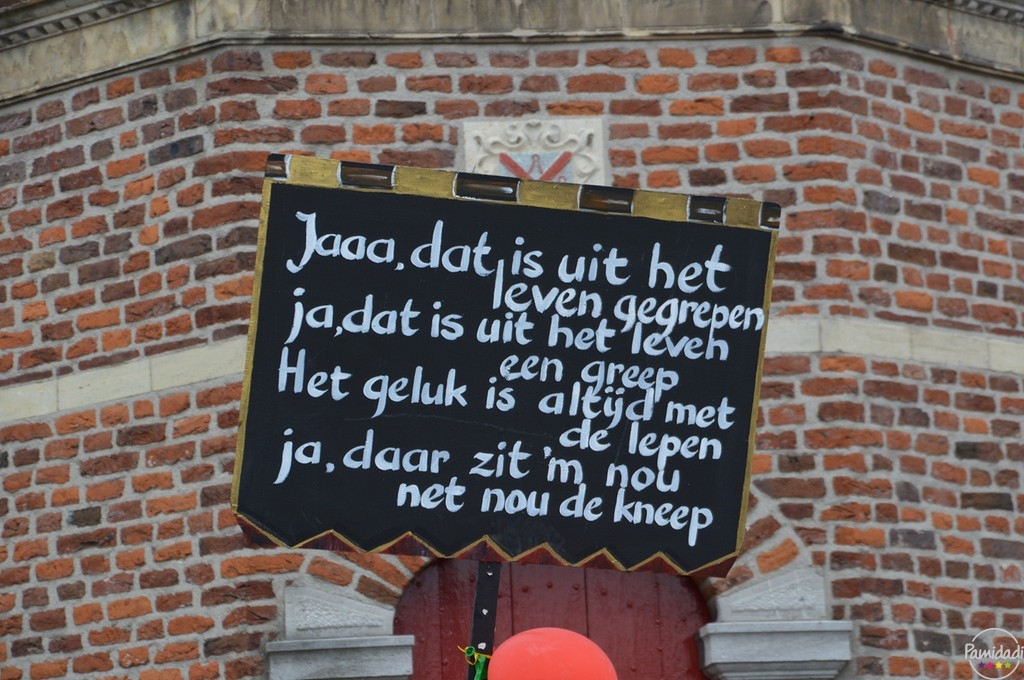 Jaaa, dat is uit het
leven gegrepen
ja, dat is uit het leven
een greep
Het geluk is altijd met
de lepen
ja, daar zit 'm nou
net nou de kneep
Pamidadi